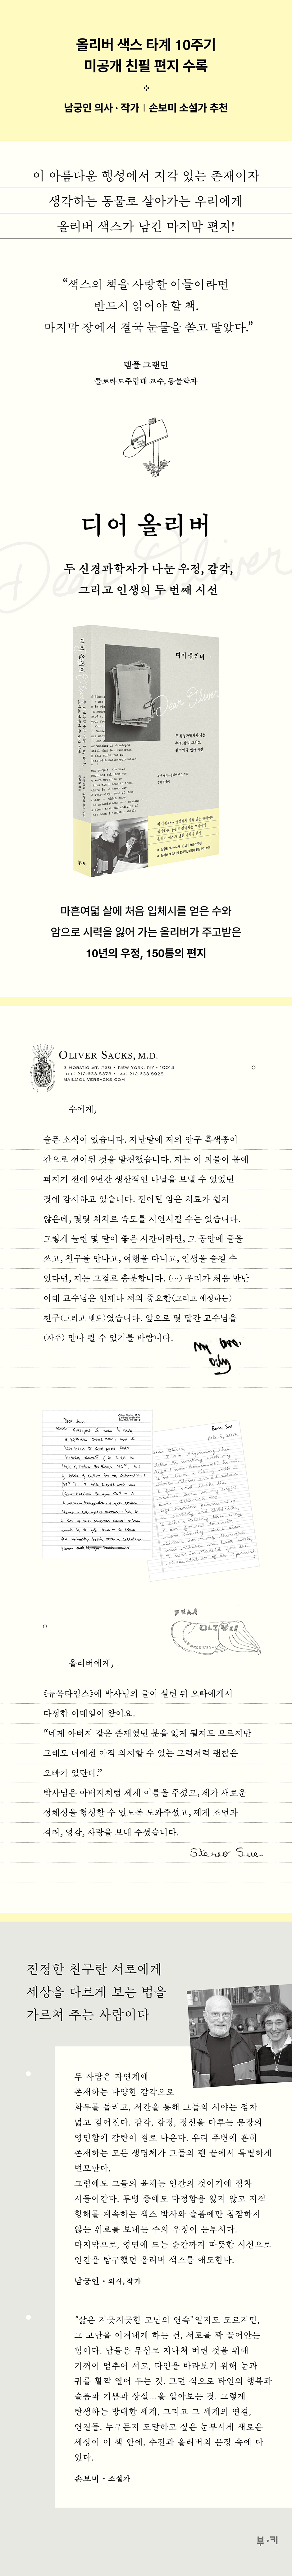 올리버 색스 타계 10주기
미공개 친필 편지 수록
남궁인 의사 · 작가 | 손보미 소설가 추천
이 아름다운 행성에서 지각 있는 존재이자
생각하는 동물로 살아가는 우리에게
올리버 색스가 남긴 마지막 편지!
“색스의 책을 사랑한 이들이라면
반드시 읽어야 할 책.
마지막 장에서 결국 눈물을 쏟고 말았다.”
템플 그랜딘
콜로라도주립대 교수, 동물학자
디어 올리버
Dear Oliver
두 신경과학자가 나눈 우정, 감각,
그리고 인생의 두 번째 시선
디어 올리버
Dear Oliver
마흔여덟 살에 처음 입체시를 얻은 수와
암으로 시력을 잃어 가는 올리버가 주고받은
10년의 우정, 150통의 편지
OLIVER SACKS, M.D.
2 HORATIO ST. #3G • NEW YORK, NY • 10014
TEL: 212.633.8373 • FAX: 212.633.8928
MAIL@OLIVERSACKS.COM
수에게,
슬픈 소식이 있습니다. 지난달에 저의 안구 흑색종이
간으로 전이된 것을 발견했습니다. 저는 이 괴물이 몸에
퍼지기 전에 9년간 생산적인 나날을 보낼 수 있었던
것에 감사하고 있습니다. 전이된 암은 치료가 쉽지
않은데, 몇몇 처치로 속도를 지연시킬 수는 있습니다.
그렇게 늘린 몇 달이 좋은 시간이라면, 그 동안에 글을
쓰고, 친구를 만나고, 여행을 다니고, 인생을 즐길 수
있다면, 저는 그걸로 충분합니다. (…) 우리가 처음 만난
이래 교수님은 언제나 저의 중요한(그리고 애정하는)
친구(그리고 멘토)였습니다. 앞으로 몇 달간 교수님을
(자주) 만나 뵐 수 있기를 바랍니다.
DEAR
OLIVER
올리버에게,
《뉴욕타임스》에 박사님의 글이 실린 뒤 오빠에게서
다정한 이메일이 왔어요.
“네게 아버지 같은 존재였던 분을 잃게 될지도 모르지만
그래도 너에겐 아직 의지할 수 있는 그럭저럭 괜찮은
오빠가 있단다.”
박사님은 아버지처럼 제게 이름을 주셨고, 제가 새로운
정체성을 형성할 수 있도록 도와주셨고, 제게 조언과
격려, 영감, 사랑을 보내 주셨습니다.
Stereo Sue
진정한 친구란 서로에게
세상을 다르게 보는 법을
가르쳐 주는 사람이다
두 사람은 자연계에
존재하는 다양한 감각으로
화두를 돌리고, 서간을 통해 그들의 시야는 점차
넓고 깊어진다. 감각, 감정, 정신을 다루는 문장의
영민함에 감탄이 절로 나온다. 우리 주변에 흔히
존재하는 모든 생명체가 그들의 펜 끝에서 특별하게
변모한다.
그럼에도 그들의 육체는 인간의 것이기에 점차
시들어간다. 투병 중에도 다정함을 잃지 않고 지적
항해를 계속하는 색스 박사와 슬픔에만 침잠하지
않는 위로를 보내는 수의 우정이 눈부시다.
마지막으로, 영면에 드는 순간까지 따뜻한 시선으로
인간을 탐구했던 올리버 색스를 애도한다.
남궁인 · 의사, 작가
“삶은 지긋지긋한 고난의 연속”일지도 모르지만,
그 고난을 이겨내게 하는 건, 서로를 꽉 끌어안는
힘이다. 남들은 무심코 지나쳐 버린 것을 위해
기꺼이 멈추어 서고, 타인을 바라보기 위해 눈과
귀를 활짝 열어 두는 것. 그런 식으로 타인의 행복과
슬픔과 기쁨과 상실…을 알아보는 것. 그렇게
탄생하는 방대한 세계, 그리고 그 세계의 연결,
연결들. 누구든지 도달하고 싶은 눈부시게 새로운
세상이 이 책 안에, 수전과 올리버의 문장 속에 다
있다.
손보미 · 소설가
부·키